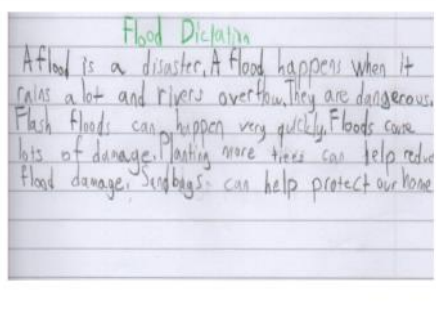 Flood Dictation
A flood is a disaster. A flood happens when it
rains a lot and rivers overflow. They are dangerous.
Flash floods can happen very quickly. Floods cause
lots of damage. Planting more trees can help reduce
flood damage. Sandbags can help protect our home